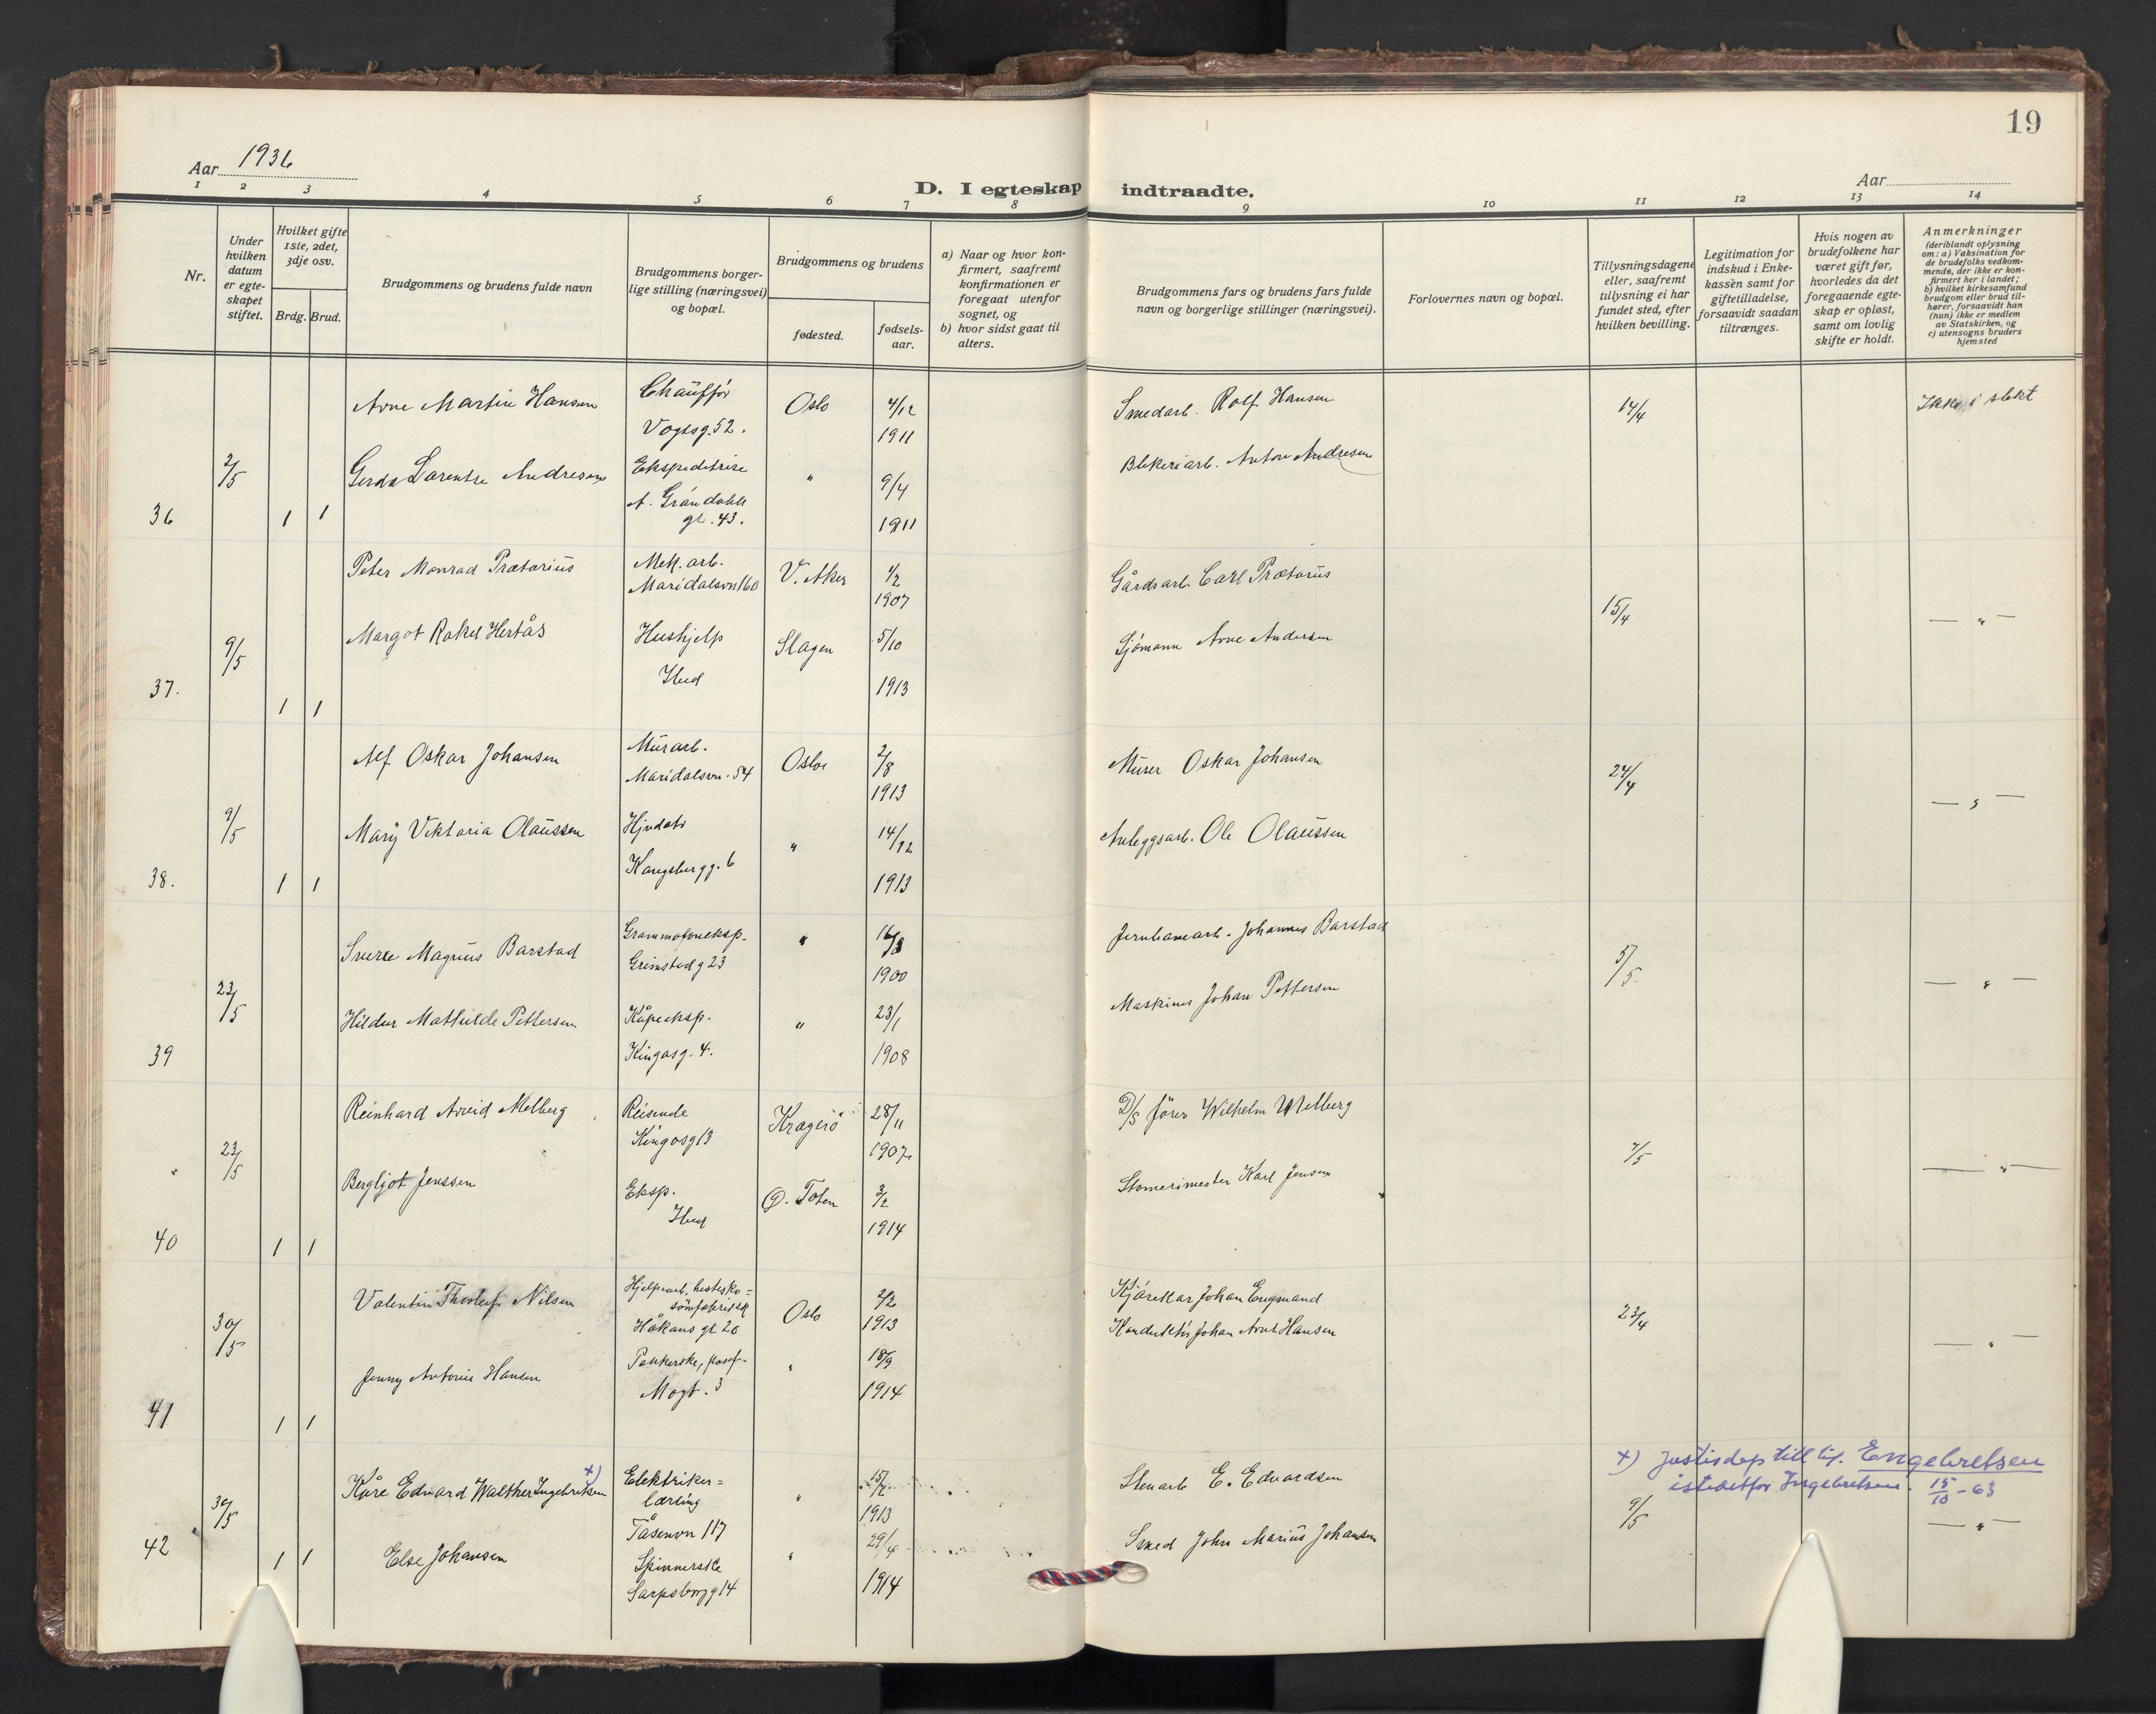 19
Aar 1936
Aar
D. I egteskap indtraadte.
1 2 3 4 5 6 7 8 9 10 11 12 13 14
Nr.
Under hvilken datum er egteskapet stiftet.
Hvilket gifte 1ste, 2det, 3dje osv.
Brdg. Brud.
Brudgommens og brudens fulde navn
Brudgommens borgerlige stilling (næringsvei) og bopæl.
Brudgommens og brudens
fødested.
fødselsaar.
a) Naar og hvor konfirmert, saafremt konfirmationen er foregaat utenfor sognet, og
b) hvor sidst gaat til alters.
Brudgommens fars og brudens fars fulde navn og borgerlige stillinger (næringsvei).
Forlovernes navn og bopæl.
Tillysningsdagene eller, saafremt tillysning ei har fundet sted, efter hvilken bevilling.
Legitimation for indskud i Enkekassèn samt for giftetilladelse, forsaavidt saadan tiltrænges.
Hvis nogen av brudefolkene har været gift før, hvorledes da det foregaaende egteskap er opløst, samt om lovlig skifte er holdt.
Anmerkninger
(deriblandt oplysning om: a) Vaksination for de brudefolks vedkommende, der ikke er konfirmert her i landet; b) hvilket kirkesamfund brudgom eller brud tilhører, forsaavidt han (hun) ikke er medlem av Statskirken, og c) utensogns bruders hjemsted
36 2/5 1 1
Arne Martin Hansen
Chauffør
Vogtsg. 52.
Oslo
4/12
1911
Smedarb. Rolf Hansen
14/4
Ikke i slekt
Gerda Lorentze Andresen
Ekspeditrise
A. Grøndahls
gt. 43.
"
9/4
1911
Blekeriarb. Anton Andresen
37. 9/5 1 1
Peter Monrad Prætorius
Mek. arb.
Maridalsvn 160
V. Aker
4/2
1907
Gårdsarb. Carl Prætorius
15/4
— " —
Margot Rakel Hertås
Hushjelp
Ibid
Slagen
5/10
1913
Sjömann Arne Andersen
38. 9/5 1 1
Alf Oskar Johansen
Murarb.
Maridalsvn. 54
Oslo
2/8
1913
Murer Oskar Johansen
24/4
— " —
Mary Viktoria Olaussen
Kongsbergg. 6
"
14/12
1913
Anleggsarb. Ole Olaussen
39 23/5
Sverre Magnus Barstad
Grammofoneksp.
Grimstadg 23
"
16/8
1900
Jernbanearb. Johannes Barstad
5/5
— " —
Hildur Mathilde Pettersen
Kåpeeksp.
Kingosg. 4.
"
23/1
1908
Maskinist Johan Pettersen
40 23/5 1 1
Reinhard Arvid Melberg
Reisende
Kingosg 13
Kragerö
28/11
1907
D/S förer Wilhelm Melberg
7/5
— " —
Bergljot Jenssen
Eksp.
Ibid
Ø. Toten
3/2
1914
Karl Jensen
41 30/5 1 1
Valentin Thorleif Nilsen
Hjelpearb. hestesko=
sömfabrikk
Håkons gt 26
Oslo
2/2
1913
Kjörekar Johan Engmand
23/4
— " —
Jenny Antonie Hansen
Pakkerske,
Mogt. 3
"
18/9
1914
Konduktör Johan Arnt Hansen
42 30/5 1 1
Kåre Edvard Walther Ingebretsen +)
Elektriker=
lærling
Tåsenvn 117
"
15/2
1913
Stenarb E. Edvardsen
9/5
— " —
+) Justisdep till. til Engebretsen
istedetfor Ingebretsen. 15/10 - 63
Else Johansen
Spinnerske
Sarpsborgg 14
"
29/4
1914
Smed John Marius Johansen